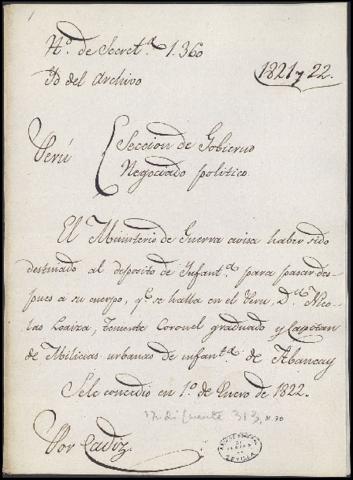 N.º de Secret.ª 1.360
Yd del Archivo
1821 y 22.
Perú
Seccion de Gobierno
Negociado político.
El Ministerio de Guerra avisa haber sido
destinado al deposito de Infant.ª para pasar des-
pues a su cuerpo, q.e se halla en el Perú, D.n Nico-
las Loaiza, Teniente Coronel graduado y Capitan
de Milicias urbanas de infant.ª de Abancay
Se le concedio en 1.º de Enero de 1822.
Indiferente 313, N. 70
Por Cadiz.
SEVILLA